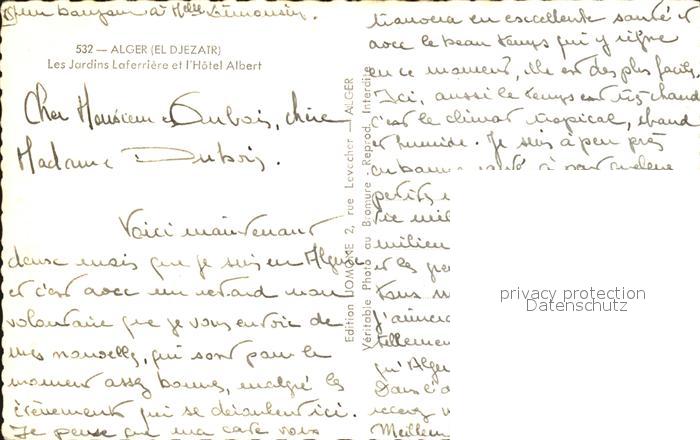 Un bonjour à Mlle Limousin.
532 — ALGER (EL DJEZAIR)
Les Jardins Laferrière et l'Hôtel Albert
Cher Monsieur Dubois, chère
Madame Dubois.
Voici maintenant
deux mois que je suis en Algérie
et c'est avec un retard non
volontaire que je vous envoie de
mes nouvelles, qui sont pour le
moment assez bonnes, malgré les
évènements qui se déroulent ici.
Je pense que ma carte vous
Edition JOMONE 2, rue Levacher — ALGER
Véritable Photo au Bromure - Reprod. Interdite
trouvera en excellente santé et
avec le beau temps qui y règne
en ce moment, elle est des plus faciles.
Ici, aussi le temps est très chaud
c'est le climat tropical, chaud
et humide. Je suis à peu près
en bonne santé à part quelques
petits
milieu
et les
tous
J'aimerai
tellement
qu'Alger
Dans l'
recevez
Meilleur
privacy protection
Datenschutz